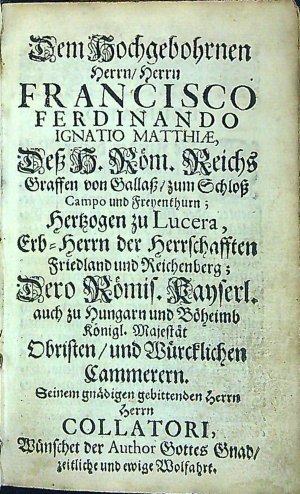 Dem Hochgebohrnen
Herrn/Herrn
FRANCISCO
FERDINANDO
IGNATIO MATTHIÆ,
Deß H. Röm. Reichs
Graffen von Gallaß/zum Schloß
Campo und Freyenthurn;
Hertzogen zu Lucera,
Erb-Herrn der Herrschafften
Friedland und Reichenberg;
Dero Römis. Kayserl.
auch zu Hungarn und Böheimb
Königl. Majestät
Obristen/und Würcklichen
Cammerern.
Seinem gnädigen gebittenden Herrn
Herrn
COLLATORI,
Wünschet der Author Gottes Gnad/
zeitliche und ewige Wolfahrt.